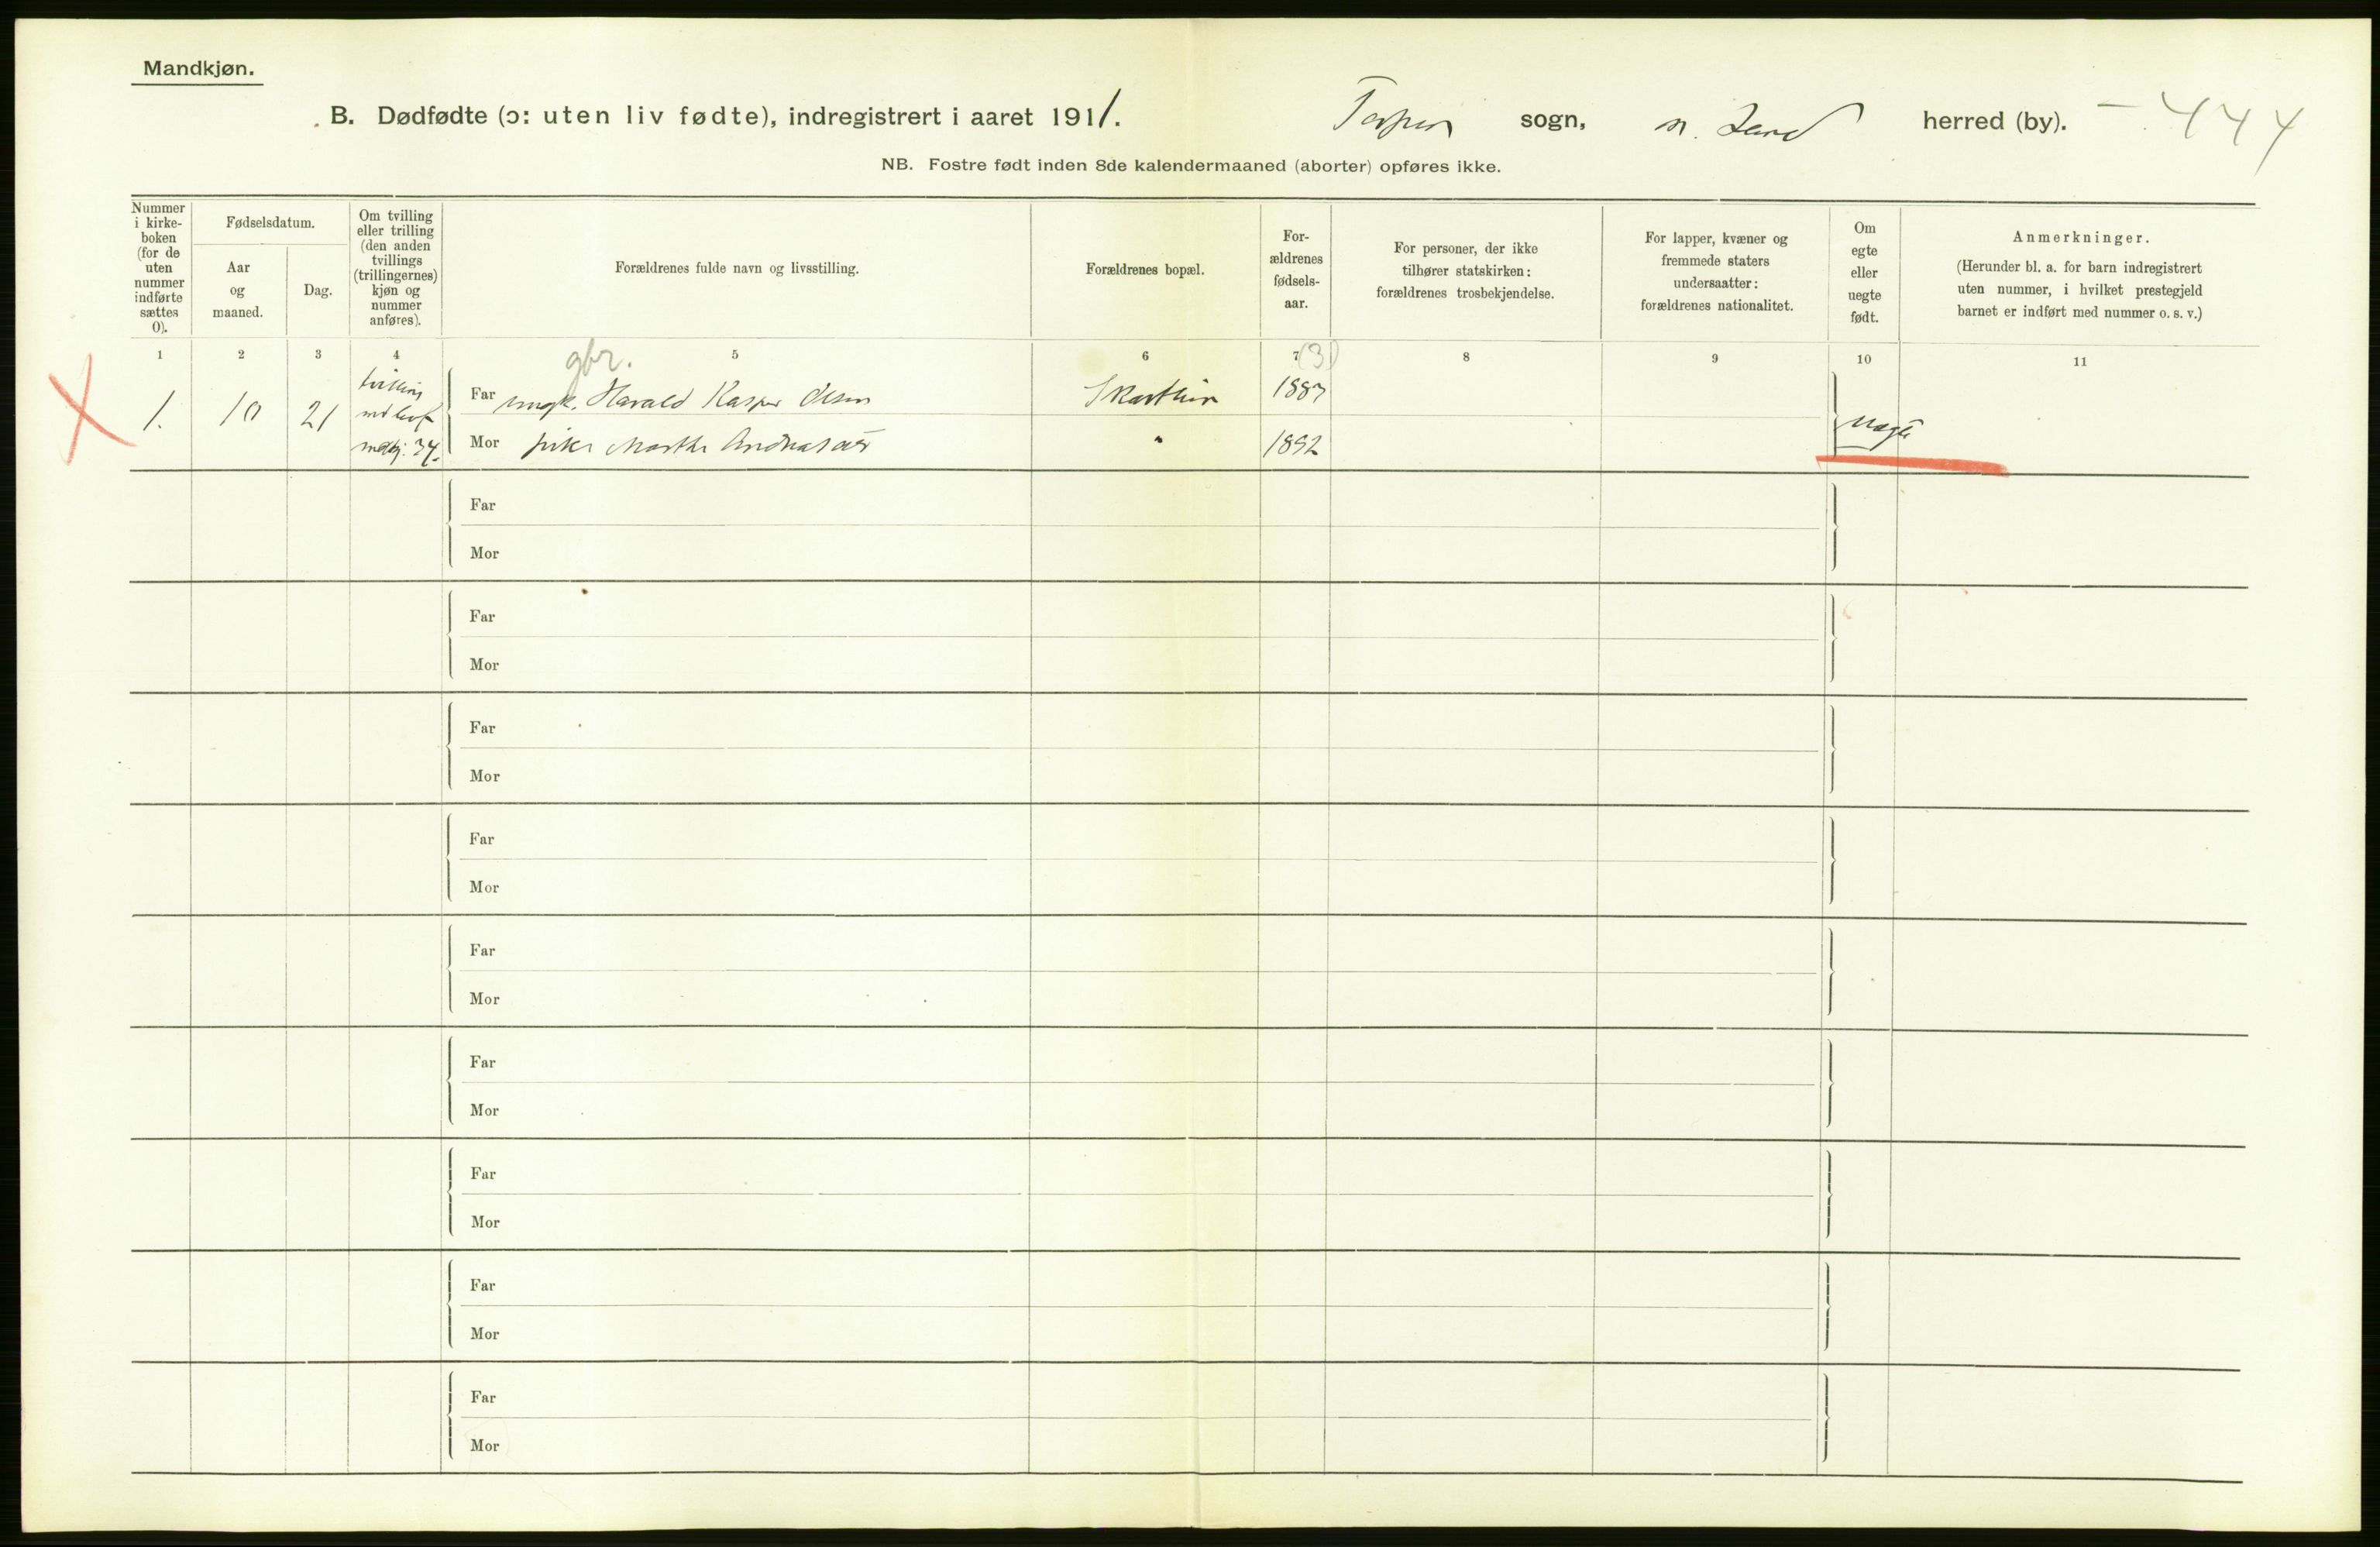 Mandkjøn.
B. Dødfødte (ɔ: uten liv fødte), indregistrert i aaret 1911. Torpen sogn, n. Land herred (by). – 444
NB. Fostre født inden 8de kalendermaaned (aborter) opføres ikke.
Nummer
i kirke-
boken
(for de
uten
nummer
indførte
sættes
0).
Fødselsdatum.
Aar
og
maaned.
Dag.
Om tvilling
eller trilling
(den anden
tvillings
(trillingernes)
kjøn og
nummer
anføres).
Forældrenes fulde navn og livsstilling.
Forældrenes bopæl.
For-
ældrenes
fødsels-
aar.
For personer, der ikke
tilhører statskirken:
forældrenes trosbekjendelse.
For lapper, kvæner og
fremmede staters
undersaatter:
forældrenes nationalitet.
Om
egte
eller
uegte
født.
Anmerkninger.
(Herunder bl. a. for barn indregistrert
uten nummer, i hvilket prestegjeld
barnet er indført med nummer o. s. v.)
1 2 3 4 5 6 7 (3) 8 9 10 11
gbr.
1. 10 21
tvilling
34.
Far ungk. Harald Kasper Olsen 1887
Mor pike Marthe Andreasdtr " 1892
uegte
Far
Mor
Far
Mor
Far
Mor
Far
Mor
Far
Mor
Far
Mor
Far
Mor
Far
Mor
Far
Mor